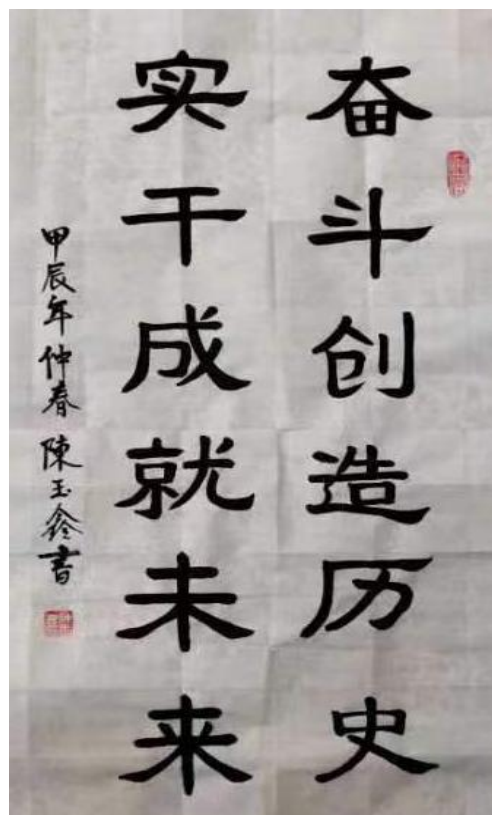 奋斗创造历史
实干成就未来
甲辰年仲春 陳玉鑫書